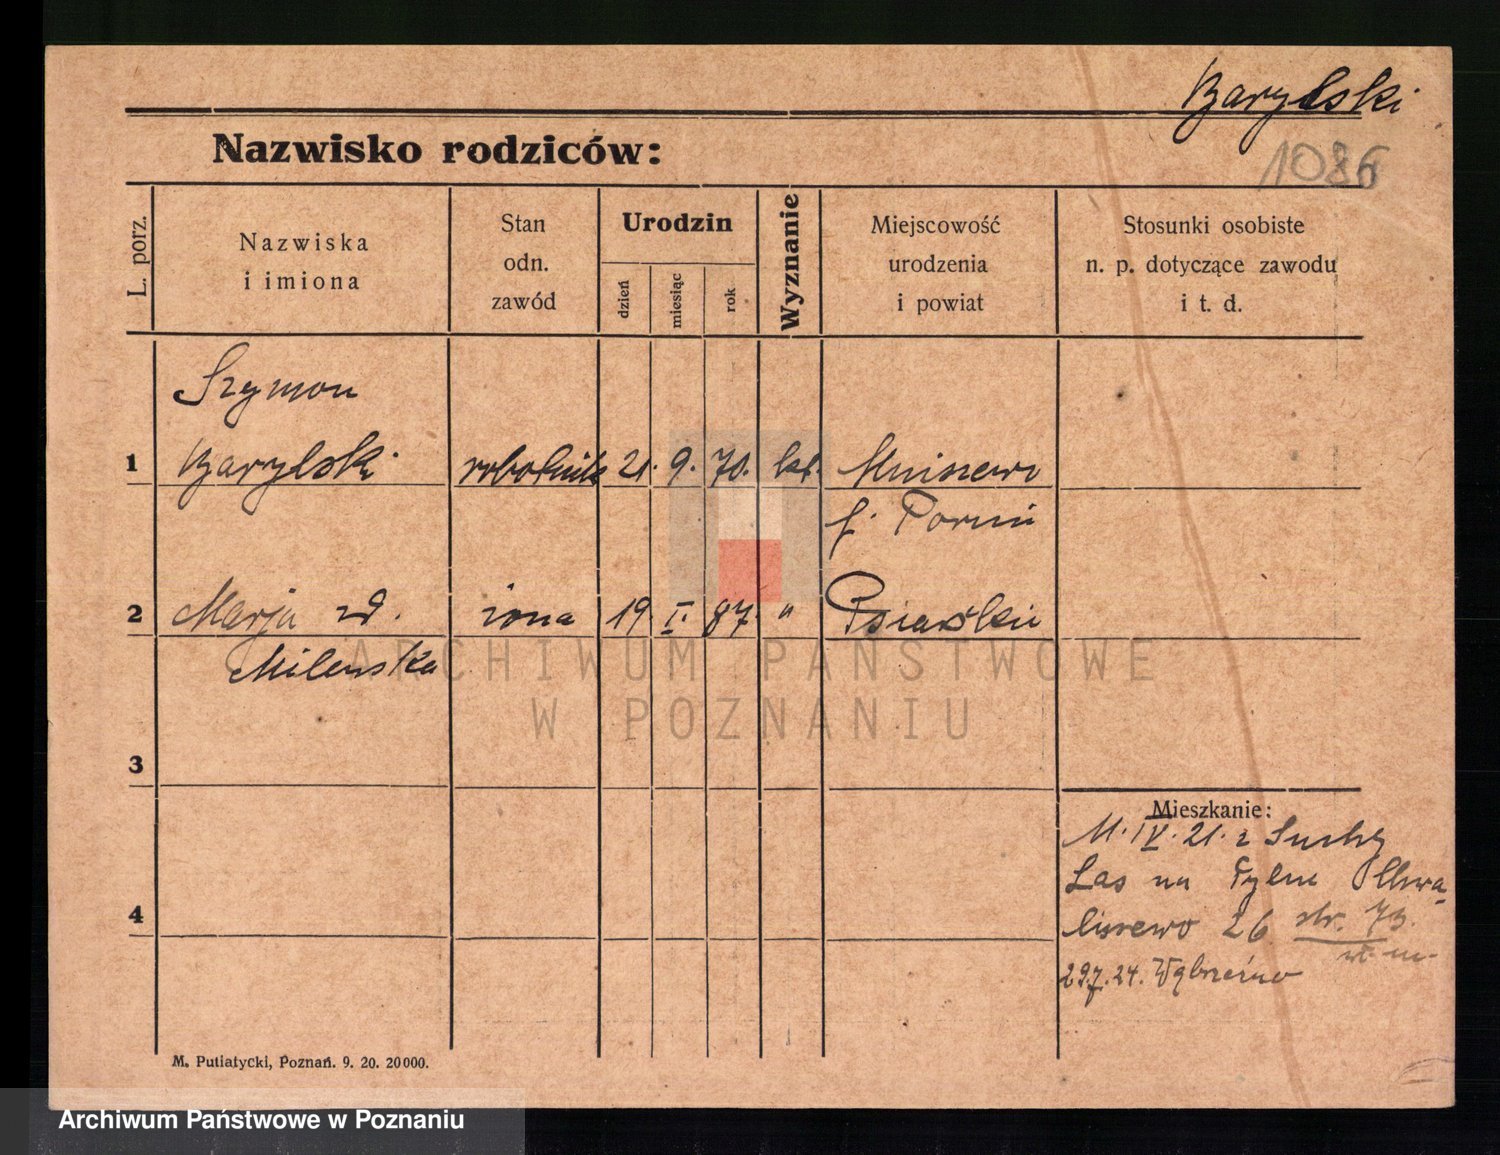 Barylski
1086
Nazwisko rodziców:
L. porz.
Nazwiska
i imiona
Stan
odn.
zawód
Urodzin
dzień
miesiąc
rok
Wyznanie
Miejscowość
urodzenia
i powiat
Stosunki osobiste
n. p. dotyczące zawodu
i t. d.
Szymon
1 Barylski robotnik 21. 9. 70. kat. Mniszewo
Toruń
2 Marja żona 19. I. 87. " Psiarskie
Milewska
3
Mieszkanie:
M. IV. 21. z Suchy
Las na Tylne Chwa-
4 liszewo 26 str. 73.
29.7.24. Wąbrzeźno
M. Putiatycki, Poznań. 9. 20. 20000.
ARCHIWUM PAŃSTWOWE
W POZNANIU
Archiwum Państwowe w Poznaniu